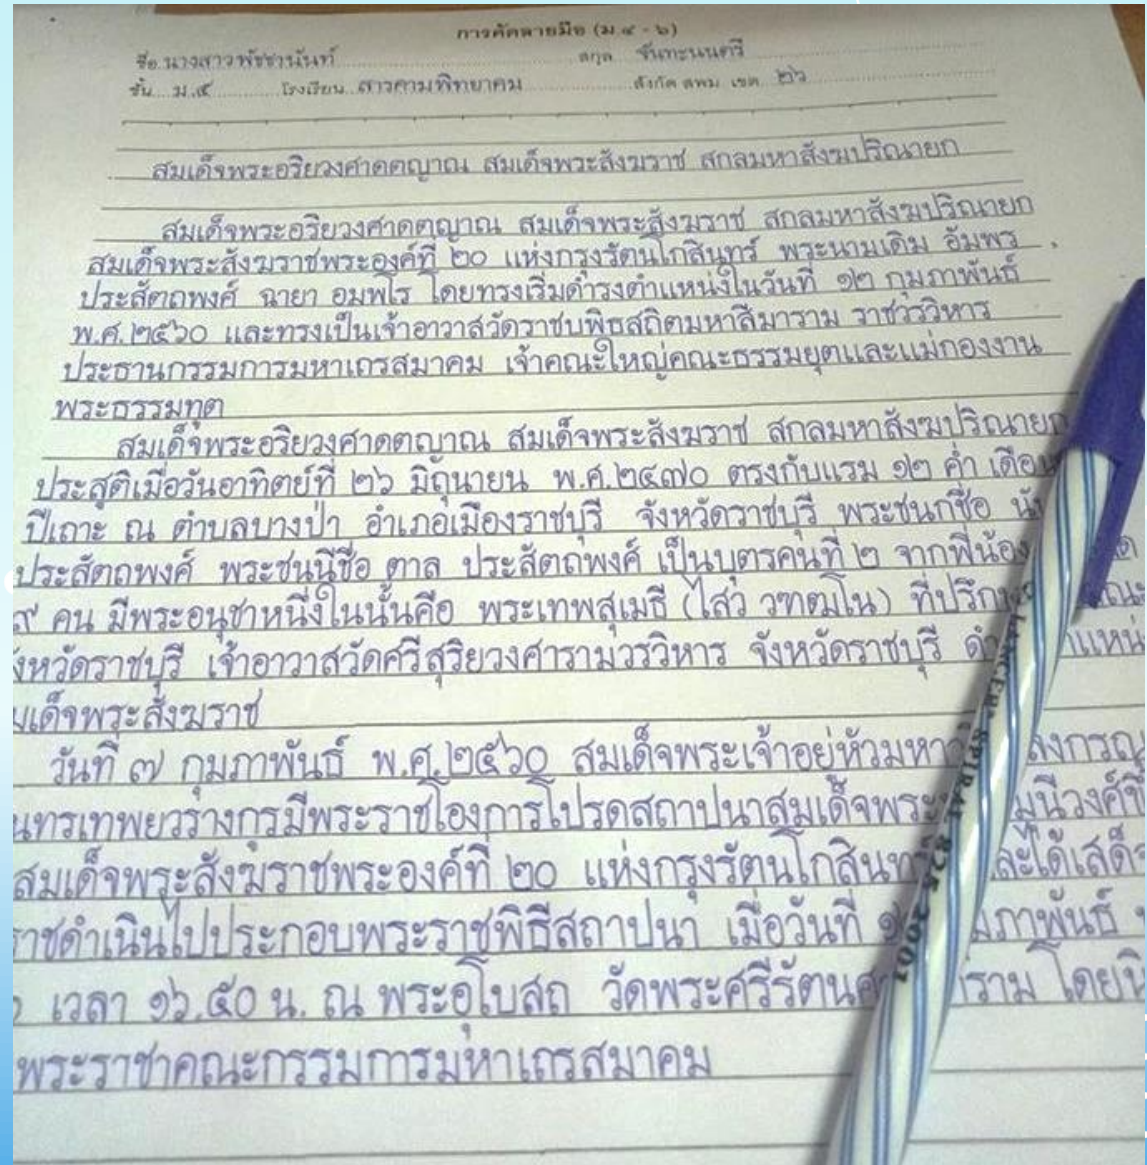 การคัดลายมือ (ม ๔ - ๖)
ชื่อ นางสาวพัชชานันท์ สกุล จันทะนนตรี
ชั้น ม.๕ โรงเรียน สารคามพิทยาคม สังกัด สพม เขต ๒๖
สมเด็จพระอริยวงศาคตญาณ สมเด็จพระสังฆราช สกลมหาสังฆปริณายก
สมเด็จพระอริยวงศาคตญาณ สมเด็จพระสังฆราช สกลมหาสังฆปริณายก
สมเด็จพระสังฆราชพระองค์ที่ ๒๐ แห่งกรุงรัตนโกสินทร์ พระนามเดิม อัมพร
ประสัตถพงศ์ ฉายา อมพโร โดยทรงเริ่มดำรงตำแหน่งในวันที่ ๑๒ กุมภาพันธ์
พ.ศ.๒๕๖๐ และทรงเป็นเจ้าอาวาสวัดราชบพิธสถิตมหาสีมาราม ราชวรวิหาร
ประธานกรรมการมหาเถรสมาคม เจ้าคณะใหญ่คณะธรรมยุตและแม่กองงาน
พระธรรมทูต
สมเด็จพระอริยวงศาคตญาณ สมเด็จพระสังฆราช สกลมหาสังฆปริณายก
ประสูติเมื่อวันอาทิตย์ที่ ๒๖ มิถุนายน พ.ศ.๒๔๗๐ ตรงกับแรม ๑๒ ค่ำ เดือน
ปีเถาะ ณ ตำบลบางป่า อำเภอเมืองราชบุรี จังหวัดราชบุรี พระชนกชื่อ
ประสัตถพงศ์ พระชนนีชื่อ ตาล ประสัตถพงศ์ เป็นบุตรคนที่ ๒ จากพี่น้อง
๙ คน มีพระอนุชาหนึ่งในนั้นคือ พระเทพสุเมธี (ไสว วฑฒโน) ที่ปรึก
ังหวัดราชบุรี เจ้าอาวาสวัดศรีสุริยวงศารามวรวิหาร จังหวัดราชบุรี ดำ
มเด็จพระสังฆราช
วันที่ ๗ กุมภาพันธ์ พ.ศ.๒๕๖๐ สมเด็จพระเจ้าอยู่หัวมหา ลงกรณ
นทรเทพยวรางกูรมีพระราชโองการโปรดสถาปนาสมเด็จพระ มุนีวงศ์ขึ้
สมเด็จพระสังฆราชพระองค์ที่ ๒๐ แห่งกรุงรัตนโกสินทร ละได้เสด็จ
ราชดำเนินไปประกอบพระราชพิธีสถาปนา เมื่อวันที่ มภาพันธ์
เวลา ๑๖.๕๐ น. ณ พระอุโบสถ วัดพระศรีรัตนศ าราม โดยนิ
พระราชาคณะกรรมการมหาเถรสมาคม